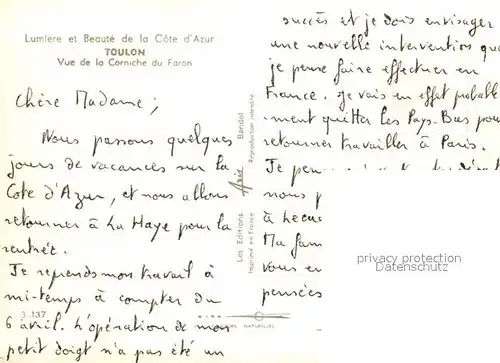 Lumière et Beauté de la Côte d'Azur
TOULON
Vue de la Corniche du Faron
Chère Madame,
Nous passons quelques
jours de vacances sur la
Cote d'Azur, et nous allons
retourner à La Haye pour la
rentrée.
Je reprends mon travail à
mi-temps à compter du
6 avril. L'opération de mon
petit doigt n'a pas été un
3.137
Les Editions Aris Bandol
Imprimé en France Reproduction interdite
NATURELLES
succès et je dois envisager
une nouvelle intervention que
je peux faire effectuer en
France. Je vais en effet probable-
ment quitter les Pays-Bas pour
retourner travailler à Paris.
Je
nous
à
Ma
vous
pensées
privacy protection
Datenschutz